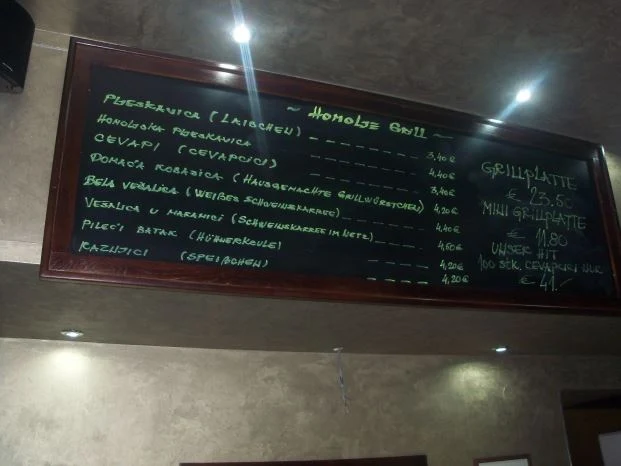 ~ HOMOLJE GRILL ~
PLJESKAVICA (LAIBCHEN) 3,40€
HOMOLJSKA PLJESKAVICA 4,40€
CEVAPI (CEVAPCICI) 3,40€
DOMAĆA KOBASICA (HAUSGEMACHTE GRILLWÜRSTCHEN) 4,20€
BELA VEŠALICA (WEIßES SCHWEINSKARREE) 4,40€
VEŠALICA U MARAMICI (SCHWEINSKARREE IM NETZ) 4,60€
PILEĆI BATAK (HÜHNERKEULE) 4,20€
RAZNJICI (SPEIßCHEN) 4,20€
GRILLPLATTE
€ 23.50
MINI GRILLPLATTE
€ 11.80
UNSER HIT
100 STK. CEVAPCICI NUR
€ 41.-